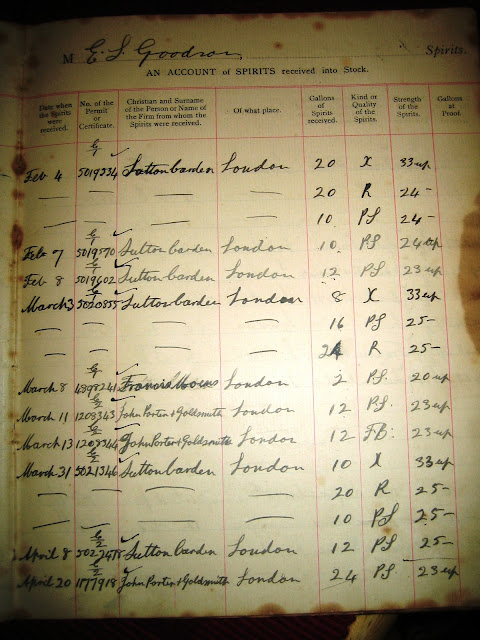 M E. S. Goodson. Spirits.
AN ACCOUNT of SPIRITS received into Stock.
Date when the Spirits were received. No. of the Permit or Certificate. Christian and Surname of the Person or Name of the Firm from whom the Spirits were received. Of what place. Gallons of Spirits received. Kind or Quality of the Spirits. Strength of the Spirits. Gallons at Proof.
Feb 4 5019334 Sutton Carden London 20 X 33 up
— — — — 20 R 24 -
— — — — 10 PS 24 -
Feb 7 5019570 Sutton Carden London 10 PS 24 up
Feb 8 5019602 Sutton Carden London 12 PS 23 up
March 3 5020855 Sutton Carden London 8 X 33 up
— — — — 16 PS 25 -
— — — — 24 R 25 -
March 8 4898241 Francis London 2 PS. 20 up
March 11 1208343 John Porter + Goldsmith London 12 PS. 23 up
March 13 1208344 John Porter + Goldsmith London 12 FB: 23 up
March 31 5021346 Sutton Carden London 10 X 33 up
— — — — 20 R 25 -
— — — — 10 PS 25 -
April 8 Sutton Carden London 12 PS 25 -
April 20 1177918 John Porter + Goldsmith London 24 PS 23 up